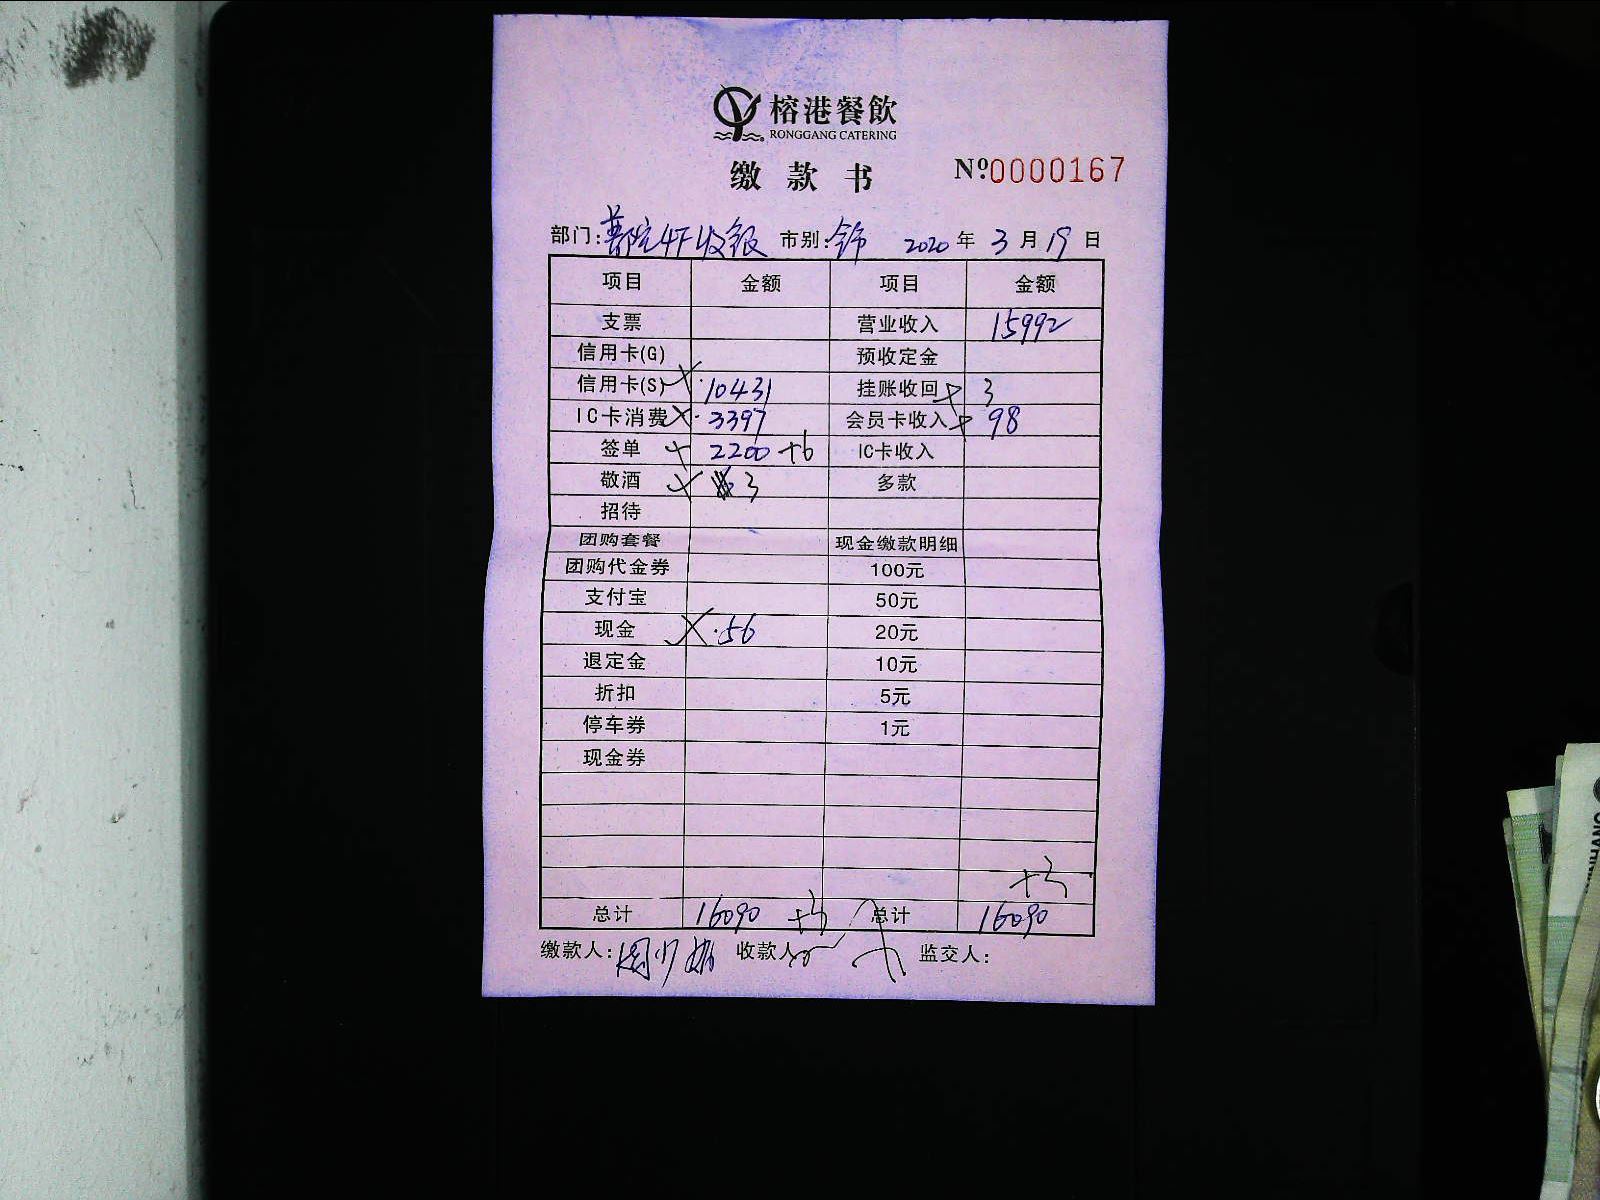 榕港餐飲
RONGGANG CATERING
缴款书 Nº0000167
部门: 4F收银 市别: 2020年3月19日
项目 金额 项目 金额
支票 营业收入 15992
信用卡(G) 预收定金
信用卡(S) 10431 挂账收回 3
IC卡消费 3397 会员卡收入 98
签单 2200 +6 IC卡收入
敬酒 3 多款
招待
团购套餐 现金缴款明细
团购代金券 100元
支付宝 50元
现金 56 20元
退定金 10元
折扣 5元
停车券 1元
现金券
+3
总计 16090 +3 总计 16090
缴款人: 收款人 监交人: